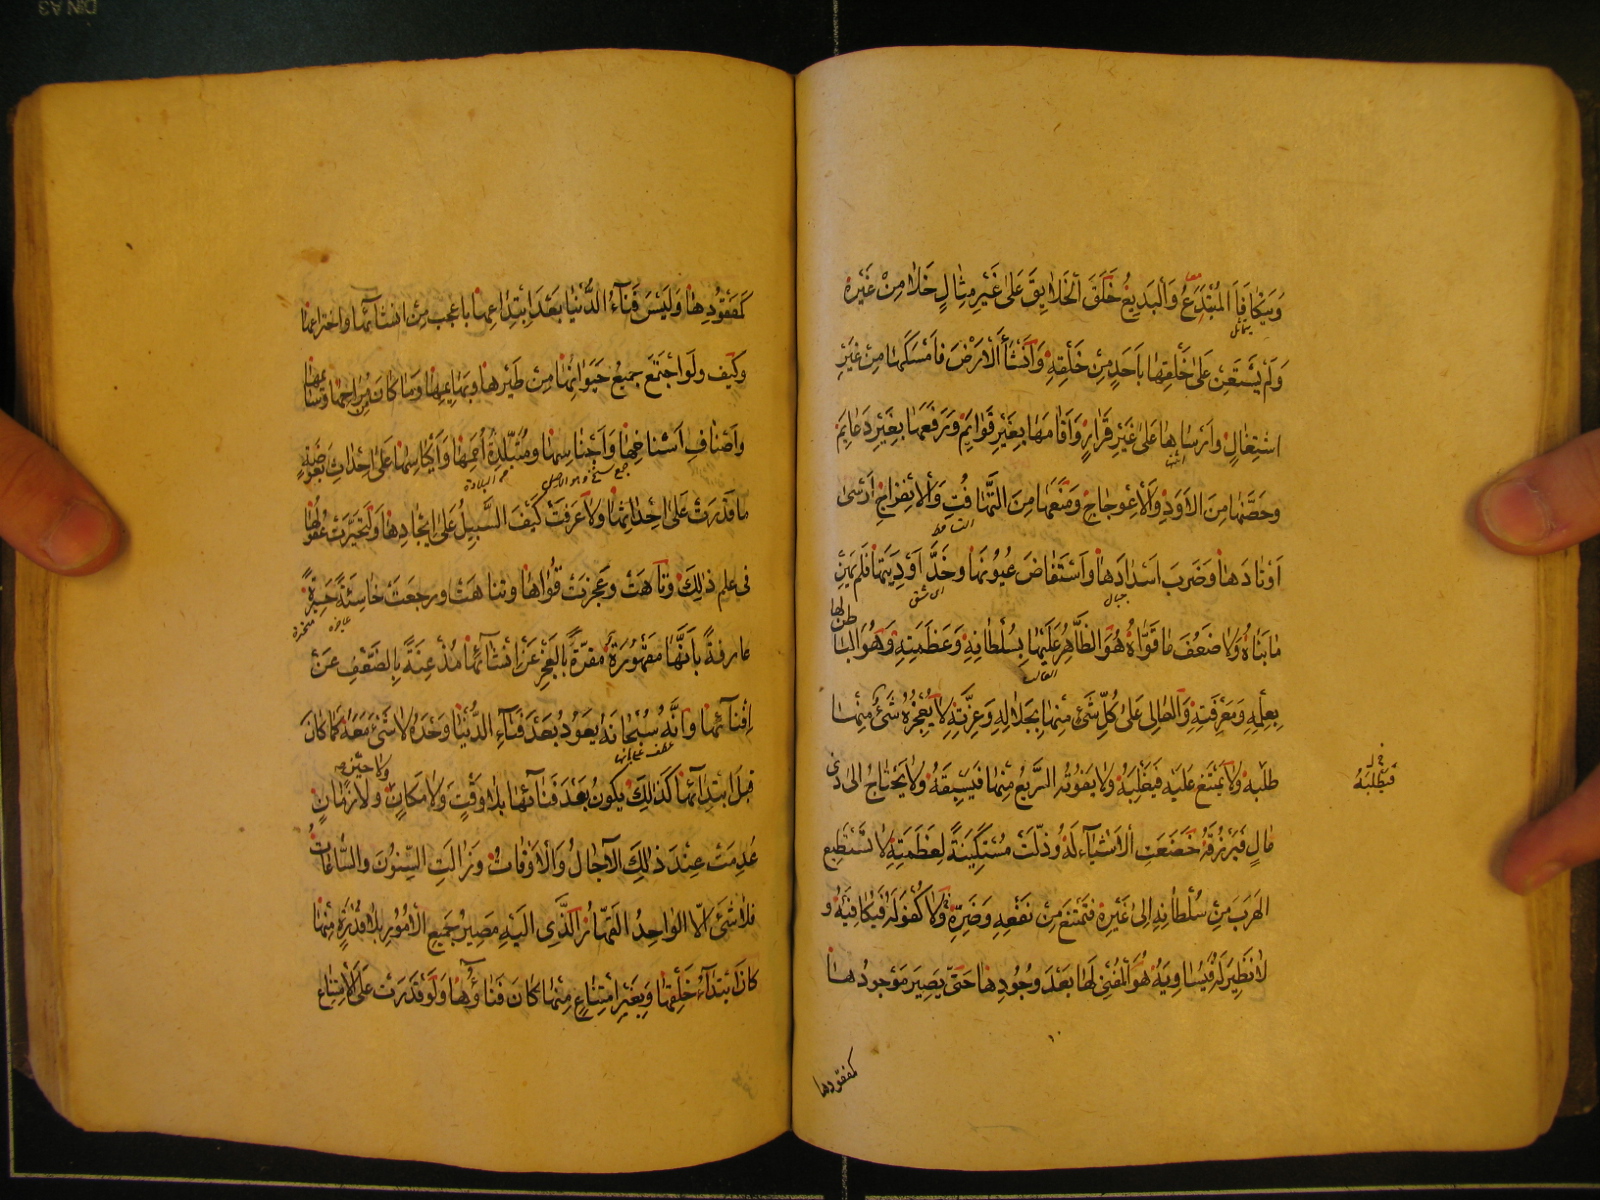 وَيُكافِأَ المُبْتَدَعُ وَالبَدِيعُ خَلَقَ الخَلَايِقَ عَلى غَيْرِ مِثالٍ خَلَا مِنْ غَيْرِهِ
وَلَمْ يَسْتَعِنْ عَلى خَلْقِها بِاَحَدٍ مِنْ خَلْقِهِ وَاَنْشَأَ الاَرْضَ فَاَمْسَكَها مِنْ غَيْرِ
اشتِغالٍ وَاَرْساها عَلى غَيْرِ قَرارٍ وَاَقامَها بِغَيْرِ قَوائِمَ وَرَفَعَها بِغَيْرِ دَعايِمَ
وَحَصَّنَها مِنَ الاَوَدِ وَالاِعْوِجاجِ وَمَنَعَها مِنَ التَّهافُتِ وَالاِنْفِراجِ اَرْسى
اَوْتادَها وَضَرَبَ اَسْدادَها وَاسْتَفاضَ عُيُونَها وَخَدَّ اَوْدِيَتَها فَلَمْ يَهِنْ
ما بَناهُ وَلا ضَعُفَ ما قَوَّاهُ هُوَ الظَّاهِرُ عَلَيْها بِسُلْطانِهِ وَعَظَمَتِهِ وَهُوَ الباطِنُ لَها
بِعِلْمِهِ وَمَعْرِفَتِهِ وَالعالِى عَلى كُلِّ شَىْءٍ مِنْها بِجَلالِهِ وَعِزَّتِهِ لا يُعْجِزُهُ شَىْءٌ مِنْها
طَلَبَهُ وَلا يَمْتَنِعُ عَلَيْهِ فَيَغْلِبَهُ وَلا يَفُوتُهُ السَّرِيعُ مِنْها فَيَسْبِقَهُ وَلا يَحْتاجُ اِلى ذِى
مالٍ فَيَرْزُقَهُ خَضَعَتِ الاَشْياءُ لَهُ وَذَلَّتْ مُسْتَكِينَةً لِعَظَمَتِهِ لا تَسْتَطِيعُ
الهَرَبَ مِنْ سُلْطانِهِ اِلى غَيْرِهِ فَتَمْتَنِعَ مِنْ نَفْعِهِ وَضَرِّهِ وَلا كُفْوَ لَهُ فَيُكافِئَهُ وَ
لا نَظِيرَ لَهُ فَيُساوِيَهُ هُوَ المُفْنِى لَها بَعْدَ وُجُودِها حَتّى يَصِيرَ مَوْجُودُها
كمفقودها
كَمَفْقُودِها وَلَيْسَ فَناءُ الدُّنْيا بَعْدَ ابْتِداعِها بِاَعْجَبَ مِنْ اِنْشائِها وَاخْتِراعِها
وَكَيْفَ وَلَوِ اجْتَمَعَ جَمِيعُ حَيَوانِها مِنْ طَيْرِها وَبَهائِمِها وَما كانَ مِنْ مُراحِها وَسائِمِها
وَاَصْنافِ اَسْناخِها وَاَجْناسِها وَمُتَبَلِّدَةِ اُمَمِها وَاَكْياسِها عَلى اِحْداثِ بَعُوضَةٍ
ما قَدَرَتْ عَلى اِحْداثِها وَلا عَرَفَتْ كَيْفَ السَّبِيلُ عَلى اِيْجادِها وَلَتَحَيَّرَتْ عُقُولُها
فى عِلْمِ ذٰلِكَ وَتاهَتْ وَعَجَزَتْ قُواها وَتَناهَتْ وَرَجَعَتْ خاسِئَةً حَسِيرَةً
عارِفَةً بِاَنَّها مَقْهُورَةٌ مُقِرَّةً بِالعَجْزِ عَنْ اِنْشائِها مُذْعِنَةً بِالضَّعْفِ عَنْ
اِفْنائِها وَاَنَّهُ سُبْحانَهُ يَعُودُ بَعْدَ فَناءِ الدُّنْيا وَحْدَهُ لا شَىْءَ مَعَهُ كَما كانَ
قَبْلَ ابْتِدائِها كَذٰلِكَ يَكُونُ بَعْدَ فَنائِها بِلا وَقْتٍ وَلا مَكانٍ وَلا حِيْنٍ وَلا زَمانٍ
عُدِمَتْ عِنْدَ ذٰلِكَ الآجالُ وَالاَوْقاتُ وَزالَتِ السِّنُونَ وَالسّاعاتُ
فَلا شَىْءَ اِلّا الواحِدُ القَهّارُ الَّذِى اِلَيْهِ مَصِيرُ جَمِيعِ الاُمُورِ بِلا قُدْرَةٍ مِنْها
كانَ ابْتِداءُ خَلْقِها وَبِغَيْرِ امْتِناعٍ مِنْها كانَ فَناؤُها وَلَوْ قَدَرَتْ عَلَى الاِمْتِناعِ